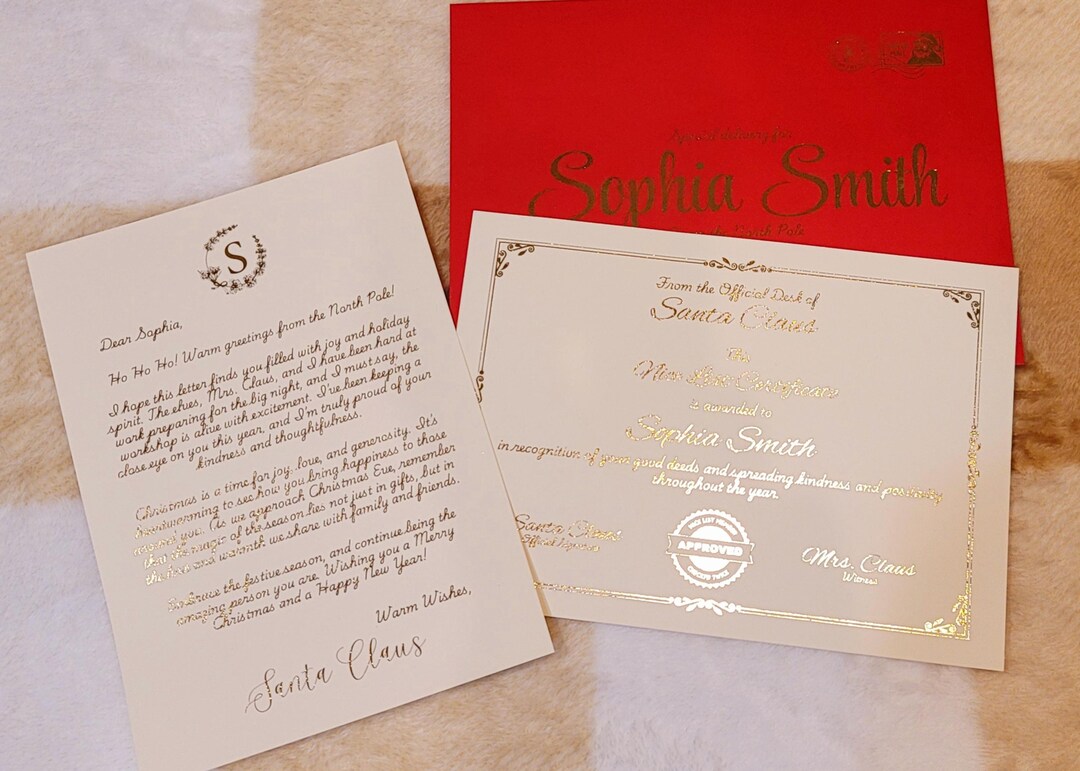 S
Dear Sophia,
Ho Ho Ho! Warm greetings from the North Pole!
I hope this letter finds you filled with joy and holiday
spirit. The elves, Mrs. Claus, and I have been hard at
work preparing for the big night, and I must say, the
workshop is alive with excitement. I've been keeping a
close eye on you this year, and I'm truly proud of your
kindness and thoughtfulness.
Christmas is a time for joy, love, and generosity. It's
heartwarming to see how you bring happiness to those
around you. As we approach Christmas Eve, remember
that the magic of the season lies not just in gifts, but in
the love and warmth we share with family and friends.
Embrace the festive season, and continue being the
amazing person you are. Wishing you a Merry
Christmas and a Happy New Year!
Warm Wishes,
Santa Claus
Special delivery for
Sophia Smith
North Pole
From the Official Desk of
Santa Claus
This
Nice List Certificate
is awarded to
Sophia Smith
in recognition of your good deeds and spreading kindness and positivity
throughout the year.
Santa Claus
Official Signature
NICE LIST MEMBER
APPROVED
CHECKED TWICE
Mrs. Claus
Witness